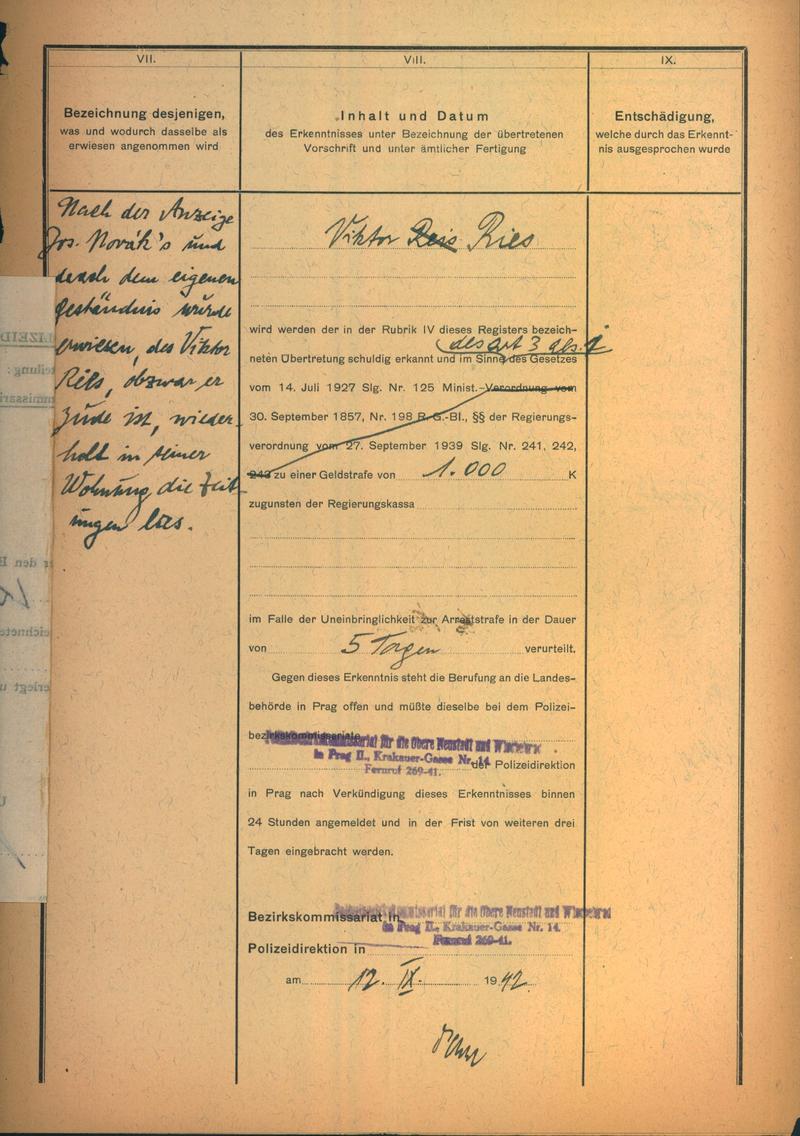 VII.
Bezeichnung desjenigen,
was und wodurch dasselbe als
erwiesen angenommen wird
Nach der Anzeige
Jos. Novák's und
nach dem eigenen
Geständnis wurde
erwiesen, des Viktor
Ries, obzwar er
Jude ist, wieder
holt in seiner
Wohnung die Zeit
ungen las.
VIII.
Inhalt und Datum
des Erkenntnisses unter Bezeichnung der übertretenen
Vorschrift und unter ämtlicher Fertigung
Viktor Reis Ries
wird werden der in der Rubrik IV dieses Registers bezeich-
des art 3 abs. 1
neten Übertretung schuldig erkannt und im Sinne des Gesetzes
vom 14. Juli 1927 Slg. Nr. 125 Minist.-Verordnung vom
30. September 1857, Nr. 198 R.-G.-Bl., §§ der Regierungs-
verordnung vom 27. September 1939 Slg. Nr. 241, 242,
243 zu einer Geldstrafe von 1.000 K
zugunsten der Regierungskassa
im Falle der Uneinbringlichkeit zur Arreststrafe in der Dauer
von 5 Tagen verurteilt.
Gegen dieses Erkenntnis steht die Berufung an die Landes-
behörde in Prag offen und müßte dieselbe bei dem Polizei-
bezirkskommissariate für die Obere Neustadt und
in Prag II., Krakauer-Gasse Nr. 14. der Polizeidirektion
Fernruf 269-41.
in Prag nach Verkündigung dieses Erkenntnisses binnen
24 Stunden angemeldet und in der Frist von weiteren drei
Tagen eingebracht werden.
Bezirkskommissariat in für die Obere Neustadt und
in Prag II., Krakauer-Gasse Nr. 14.
Fernruf 269-41.
Polizeidirektion in
am 12. IX. 1942
IX.
Entschädigung,
welche durch das Erkennt-
nis ausgesprochen wurde